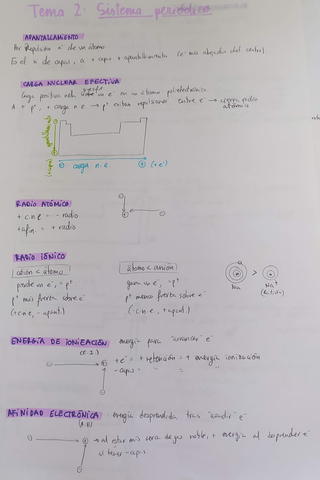 Tema 2: Sistema periódico
APANTALLAMIENTO
Por Repulsión e⁻ de un átomo
Es el n de capas, a + capas + apantallamiento (e⁻ más alejados del centro)
CARGA NUCLEAR EFECTIVA
Carga positiva neta un e⁻ en un átomo polielectrónico
A + p⁺, + carga n e → p⁺ evitan repulsiones entre e⁻ → radio atómico
carga n.e. (+e⁻)
RADIO ATÓMICO
+ c.n.e = - radio
= + radio
RADIO IÓNICO
catión < átomo
pierde un e⁻, = p⁺
p⁺ más fuerza sobre e⁻
(+ c.n.e, - apant.)
átomo < anión
gana un e⁻, = p⁺
p⁺ menos fuerza sobre e⁻
(- c.n.e, + apant.)
>
Na
Na⁺
(catión)
ENERGÍA DE IONIZACIÓN energía para "arrancar" e⁻
(E.I.)
+ e⁻ = + retención = + energía ionización
- capas = " "
AFINIDAD ELECTRÓNICA energía desprendida tras "añadir" e⁻
→ al estar más cerca de gas noble, + energía al desprender e⁻
si tener - capas